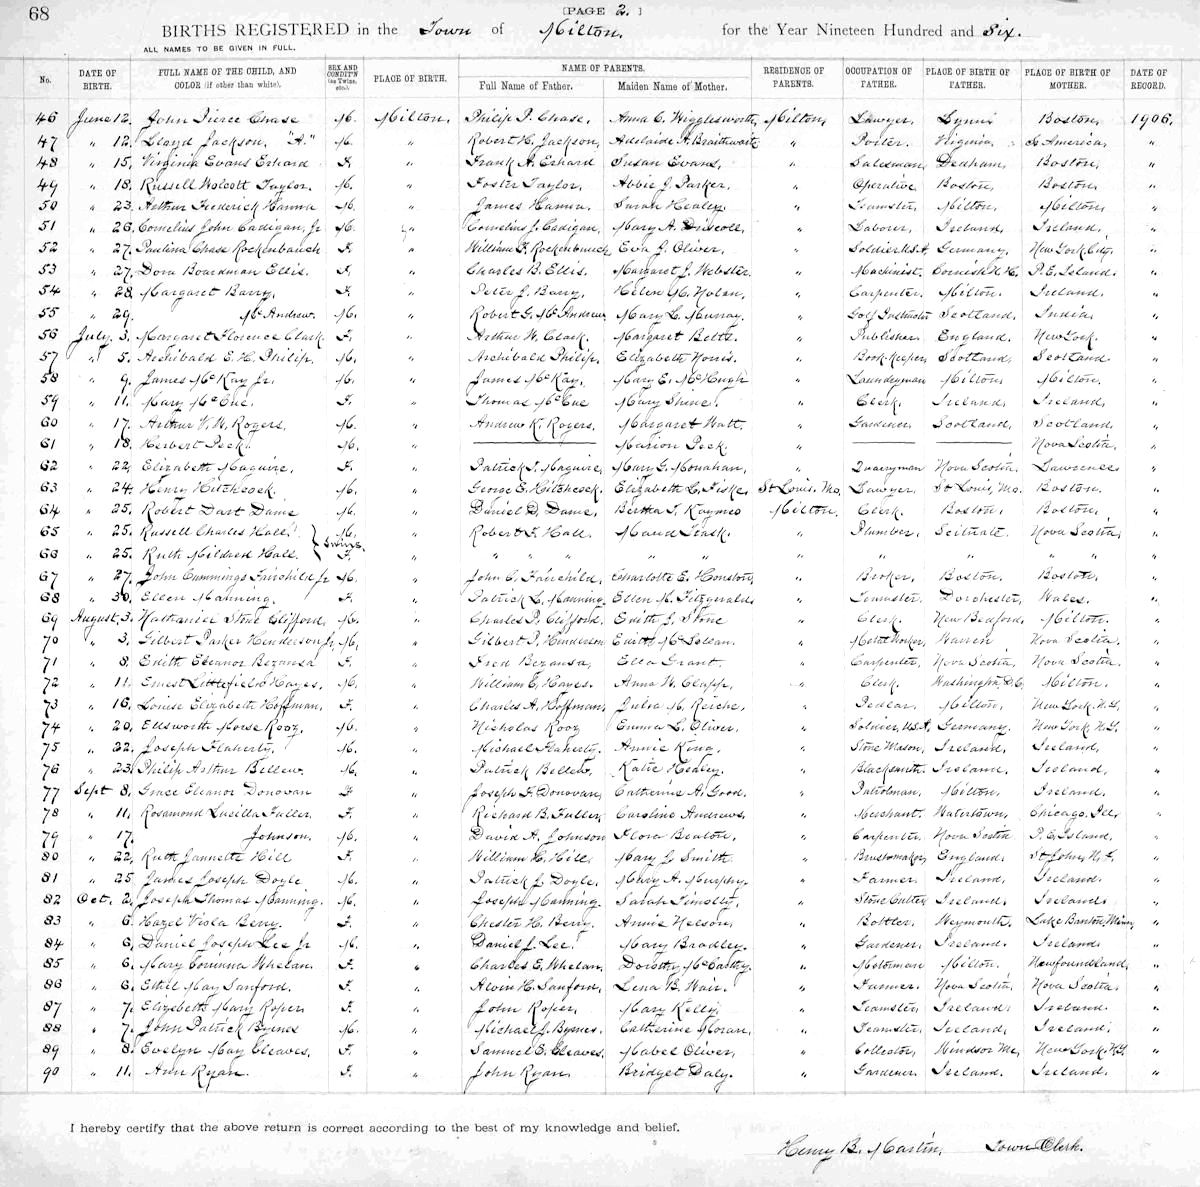 68
[PAGE 2.]
BIRTHS REGISTERED in the Town of Milton. for the Year Nineteen Hundred and Six.
ALL NAMES TO BE GIVEN IN FULL.
No. DATE OF BIRTH. FULL NAME OF THE CHILD, AND COLOR (if other than white). SEX AND CONDIT'N (as Twins, etc.) PLACE OF BIRTH. NAME OF PARENTS. Full Name of Father. Maiden Name of Mother. RESIDENCE OF PARENTS. OCCUPATION OF FATHER. PLACE OF BIRTH OF FATHER. PLACE OF BIRTH OF MOTHER. DATE OF RECORD.
46 June 12, John Pierce Chase M. Milton, Philip P. Chase, Anna C. Wigglesworth, Milton, Lawyer, Lynn Boston, 1906.
47 " 12, Lloyd Jackson, "A." M. " Robert H. Jackson, Adelaide A. Braithwaite " Porter, Virginia, So America, "
48 " 15, Virginia Evans Erhard F. " Frank A. Erhard Susan Evans, " Salesman, Dedham, Boston, "
49 " 18, Russell Wolcott Taylor. M. " Foster Taylor, Abbie J. Parker, " Operative Boston, Boston, "
50 " 23, Arthur Frederick Hanna M. " James Hanna, Sarah Healey " Teamster, Milton, Milton, "
51 " 26, Cornelius John Cadigan, Jr M. " Cornelius J. Cadigan, Mary A. Driscoll, " Laborer, Ireland, Ireland, "
52 " 27, Paulina Chase Rockenbauch F. " William F. Rockenbauch, Eva J. Oliver, " Soldier U.S.A. Germany, New York City. "
53 " 27, Dora Boardman Ellis. F. " Charles B. Ellis. Margaret J. Webster. " Machinist. Cornish N.H. P.E. Island. "
54 " 28, Margaret Barry, F. " Peter J. Barry, Helen M. Nolan, " Carpenter, Milton, Ireland. "
55 " 29, McAndrew. M. " Robert G. McAndrew, Mary L. Murray. " Golf Instructor Scotland, India, "
56 July 3, Margaret Florence Clark. F. " Arthur W. Clark. Margaret Betts. " Publisher England. New York. "
57 " 5, Archibald E. H. Philip. M. " Archibald Philip, Elizabeth Norris. " Book-keeper, Scotland, Scotland. "
58 " 9, James McKay Jr. M. " James McKay, Mary E. McHugh " Laundryman Milton, Milton, "
59 " 11, Mary McCue. F. " Thomas McCue Mary Shine. " Clerk. Ireland, Ireland, "
60 " 17, Arthur V. W. Rogers, M. " Andrew K. Rogers. Margaret Watt " Gardener, Scotland, Scotland. "
61 " 18, Herbert Peck. M. " Marion Peck. " Nova Scotia, "
62 " 22, Elizabeth Maguire, F. " Patrick J. Maguire, Mary G. Monahan, " Quarryman Nova Scotia, Lawrence "
63 " 24, Henry Hitchcock. M. " George C. Hitchcock. Elizabeth L. Fiske, St Louis, Mo. Lawyer, St Louis, Mo. Boston. "
64 " 25, Robert Dart Dame M. " Daniel D. Dame, Bertha I. Raymes Milton, Clerk. Boston, Boston, "
65 " 25, Russell Charles Hall. M. " Robert F. Hall. Maud Trask. " Plumber, Scituate, Nova Scotia "
Twins.
66 " 25, Ruth Mildred Hall. F. " " " " " " " " " " "
67 " 27, John Cummings Fairchild Jr M. " John C. Fairchild, Charlotte E. Houston, " Broker, Boston, Boston, "
68 " 30, Ellen Manning. F. " Patrick L. Manning, Ellen M. Fitzgerald, " Teamster, Dorchester, Wales. "
69 August 3, Nathaniel Stone Clifford, M. " Charles P. Clifford, Edith J. Stone " Clerk. New Bedford, Milton. "
70 " 3, Gilbert Parker Henderson Jr, M. " Gilbert P. Henderson Edith McLellan. " Metal Worker, Warren Nova Scotia. "
71 " 8, Edith Eleanor Bezansa F. " Fred Bezansa, Ella Grant. " Carpenter, Nova Scotia, Nova Scotia. "
72 " 11, Ernest Littlefield Hayes, M. " William E. Hayes. Anna W. Clapp, " Clerk, Washington, D.C. Milton. "
73 " 16, Louise Elizabeth Hoffman, F. " Charles A. Hoffman, Julia M. Reiche, " Pedlar, Milton, New York. N.Y. "
74 " 20, Ellsworth Morse Rooz, M. " Nicholas Rooz Emma L. Oliver. " Soldier, U.S.A. Germany, New York N.Y. "
75 " 22, Joseph Flaherty, M. " Michael Flaherty. Annie King, " Stone Mason, Ireland, Ireland, "
76 " 23, Philip Arthur Bellew. M. " Patrick Bellew. Katie Healey. " Blacksmith. Ireland, Ireland, "
77 Sept 8, Grace Eleanor Donovan F. " Joseph F. Donovan, Catherine A. Good. " Patrolman, Milton, Ireland. "
78 " 11, Rosamond Lucilla Fuller, F. " Richard B. Fuller, Caroline Andrews, " Merchant. Watertown, Chicago. Ill. "
79 " 17, Johnson. M. " David A. Johnson Flora Beaton, " Carpenter, Nova Scotia P.E. Island, "
80 " 22, Ruth Jannette Hill F. " William H. Hill, Mary J. Smith. " Brushmaker, England. St John, N.F. "
81 " 25 James Joseph Doyle M. " Patrick J. Doyle. Mary A. Murphy. " Farmer. Ireland, Ireland. "
82 Oct. 2, Joseph Thomas Manning. M. " Joseph Manning. Sarah Tinslty, " Stone Cutter Ireland, Ireland. "
83 " 6, Hazel Viola Berry. F. " Chester H. Berry. Annie Nelson, " Bottler, Weymouth, Lake Benton, Minn, "
84 " 6, Daniel Joseph Lee Jr M. " Daniel J. Lee. Mary Bradley. " Gardener, Ireland. Ireland. "
85 " 6, Mary Corinna Whelan. F. " Charles E. Whelan, Dorothy McCarthy. " Motorman Milton. Newfoundland, "
86 " 6, Ethel May Sanford. F. " Alvin H. Sanford, Lena B. Weir. " Farmer. Nova Scotia, Nova Scotia. "
87 " 7, Elizabeth Mary Roper F. " John Roper, Mary Kelly. " Teamster, Ireland, Ireland. "
88 " 7, John Patrick Byrnes M. " Michael J. Byrnes, Catherine Moran, " Teamster, Ireland, Ireland. "
89 " 8, Evelyn May Cleaves. F. " Samuel E. Cleaves, Mabel Oliver, " Collector, Windsor Me, New York. N.Y. "
90 " 11, Ann Ryan. F. " John Ryan. Bridget Daly. " Gardener. Ireland. Ireland. "
I hereby certify that the above return is correct according to the best of my knowledge and belief.
Henry B. Martin, Town Clerk.